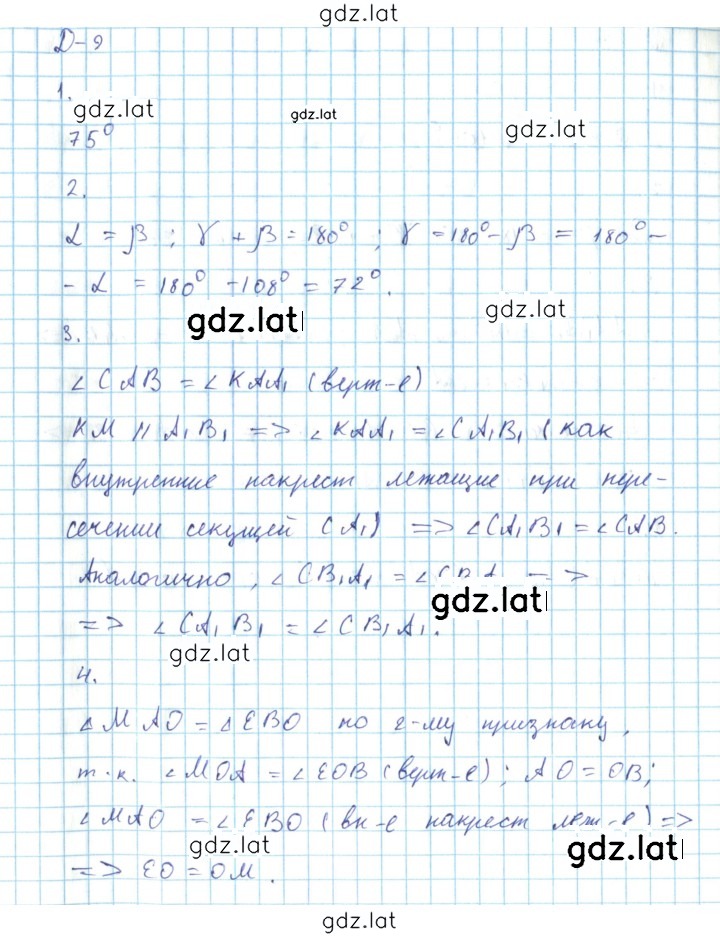 gdz.lat
Д-9
1.
gdz.lat gdz.lat gdz.lat
75°
2.
α = β ; γ + β = 180° ; γ = 180° - β = 180° -
- α = 180° - 108° = 72°.
gdz.lat gdz.lat
3.
∠CAB = ∠KAA₁ (верт-е)
KM || A₁B₁ => ∠KAA₁ = ∠CA₁B₁ (как
внутренние накрест лежащие при пере-
сечении секущей CA₁) => ∠CA₁B₁ = ∠CAB.
Аналогично, ∠CB₁A₁ = =>
gdz.lat
=> ∠CA₁B₁ = ∠CB₁A₁.
gdz.lat
4.
△MAO = △EBO по 2-му признаку,
т.к. ∠MOA = ∠EOB (верт-е); AO = OB;
∠MAO = ∠EBO (вн-е накрест леж-е) =>
gdz.lat gdz.lat
=> EO = OM.
gdz.lat